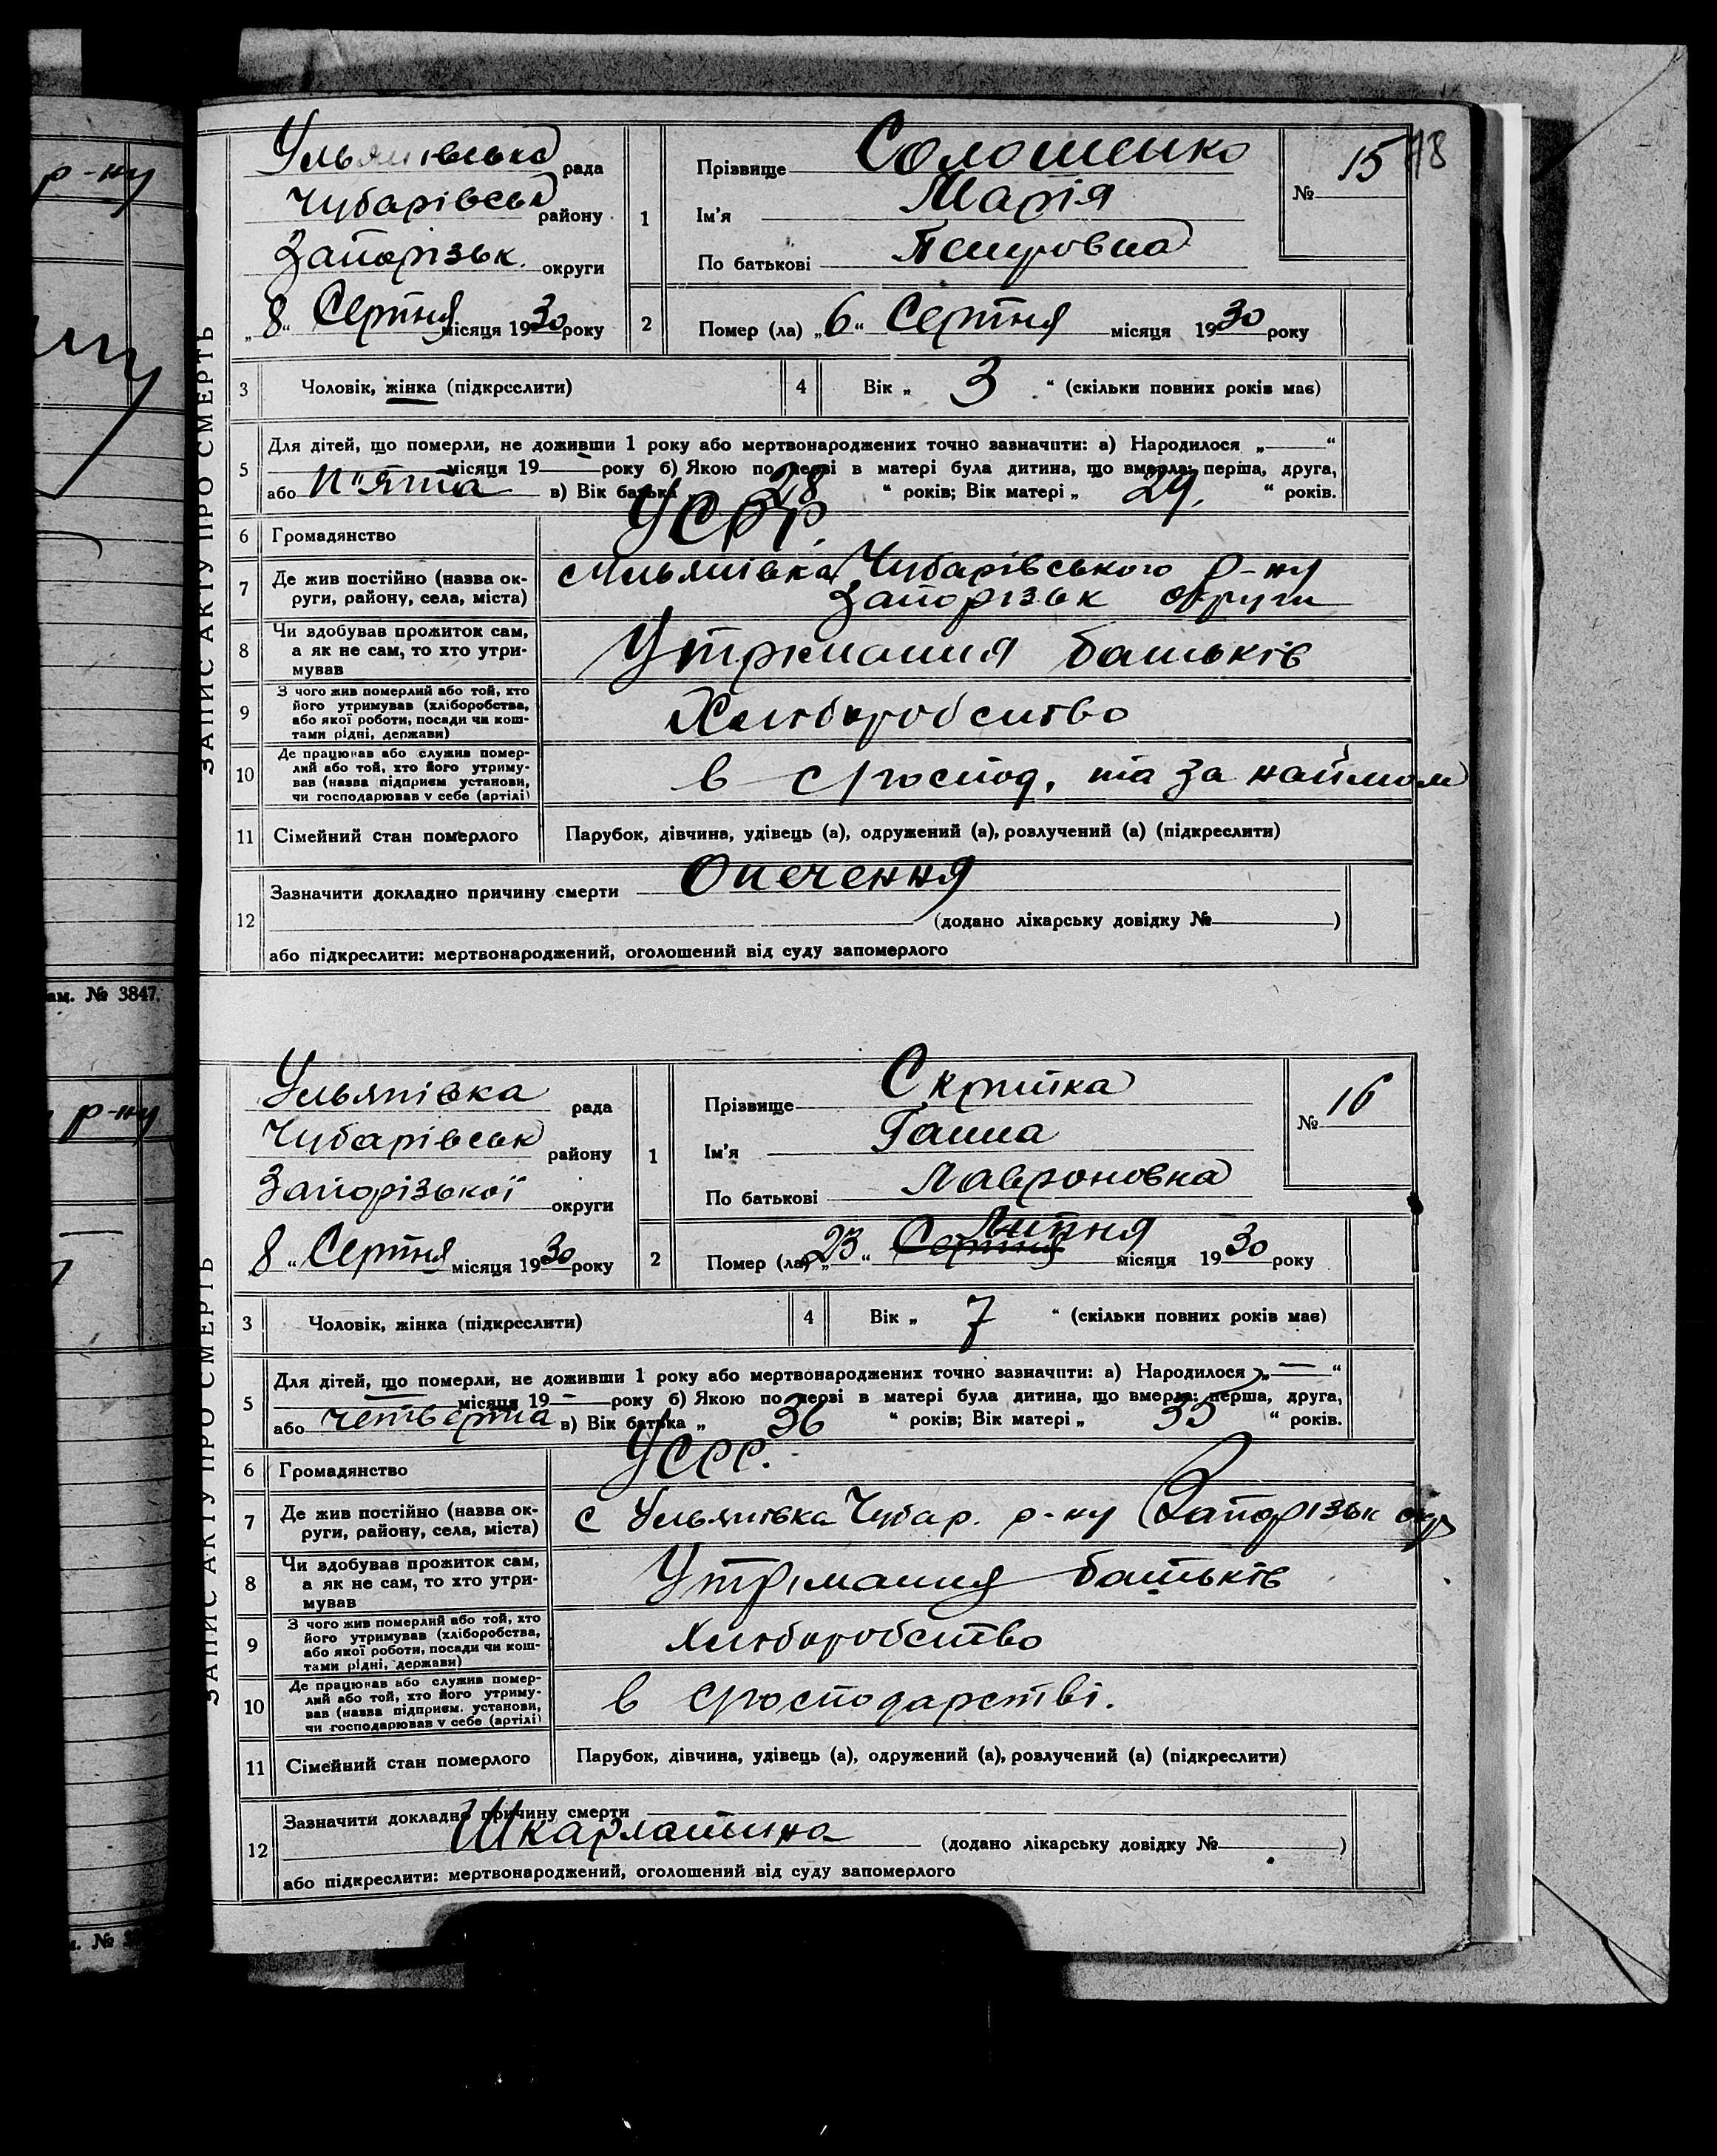 р-ну
ам. № 3847.
р-ну
м. № 3
18
ЗАПИС АКТУ ПРО СМЕРТЬ
Ульянівська рада
Чубарівськ району
Запорізьк. округи
„8“ Серпня місяця 1930 року
1
Прізвище Солошенко
Ім’я Марія
По батькові Петровна
№ 15
2
Помер (ла) „6“ Серпня місяця 1930 року
3 Чоловік, жінка (підкреслити)
4 Вік „ 3 “ (скільки повних років має)
5
Для дітей, що померли, не доживши 1 року або мертвонароджених точно зазначити: а) Народилося „—“
місяця 19— року б) Якою по черві в матері була дитина, що вмерла: перша, друга,
або п'ята в) Вік батька 28 “ років; Вік матері „ 29, “ років.
6 Громадянство УСРР.
7 Де жив постійно (назва ок-
руги, району, села, міста)
Чубарівського р-ну
Запорізьк округи
8 Чи здобував прожиток сам,
а як не сам, то хто утри-
мував
Утримання батьків
9 З чого жив померлий або той, хто
його утримував (хліборобства,
або якої роботи, посади чи кош-
тами рідні, держави)
Хліборобство
10 Де працював або служив помер-
лий або той, хто його утриму-
вав (назва підприєм. установи,
чи господарював у себе (артілі)
в с/господ. та за наймом
11 Сімейний стан померлого Парубок, дівчина, удівець (а), одружений (а), розлучений (а) (підкреслити)
12
Зазначити докладно причину смерти Опечення
(додано лікарську довідку № )
або підкреслити: мертвонароджений, оголошений від суду запомерлого
ЗАПИС АКТУ ПРО СМЕРТЬ
Ульянівка рада
Чубарівськ району
Запорізької округи
„8“ Серпня місяця 1930 року
1
Прізвище Скрипка
Ім’я Ганна
По батькові Лавроновка
№ 16
2
Липня
Помер (ла) „23“ Серпня місяця 1930 року
3 Чоловік, жінка (підкреслити)
4 Вік „ 7 “ (скільки повних років має)
5
Для дітей, що померли, не доживши 1 року або мертвонароджених точно зазначити: а) Народилося „—“
місяця 19— року б) Якою по черві в матері була дитина, що вмерла: перша, друга,
або четверта в) Вік батька „ 36 “ років; Вік матері „ 35 “ років.
6 Громадянство УСРР.
7 Де жив постійно (назва ок-
руги, району, села, міста)
с Ульянівка Чубар. р-ну Запорізьк окр
8 Чи здобував прожиток сам,
а як не сам, то хто утри-
мував
Утримання батьків
9 З чого жив померлий або той, хто
його утримував (хліборобства,
або якої роботи, посади чи кош-
тами рідні, держави)
Хліборобство
10 Де працював або служив помер-
лий або той, хто його утриму-
вав (назва підприєм. установи,
чи господарював у себе (артілі)
в с/господарстві.
11 Сімейний стан померлого Парубок, дівчина, удівець (а), одружений (а), розлучений (а) (підкреслити)
12
Зазначити докладно причину смерти
Шкарлатина (додано лікарську довідку № )
або підкреслити: мертвонароджений, оголошений від суду запомерлого